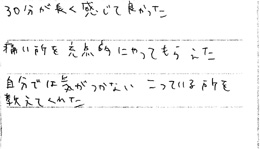 30分が長く感じて良かった
痛い所を重点的にやってもらえた
自分では気がつかない こっている所を
教えてくれた